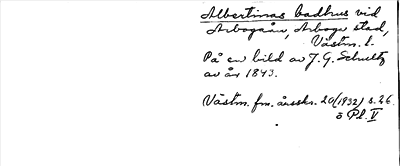 Albertinas badhus vid
Arbogaån, Arboga stad,
Västm. l.
På en bild av J. G. Schultz
av år 1843.
Västm. fm. årsskr. 20 (1932) s. 26
o Pl. V